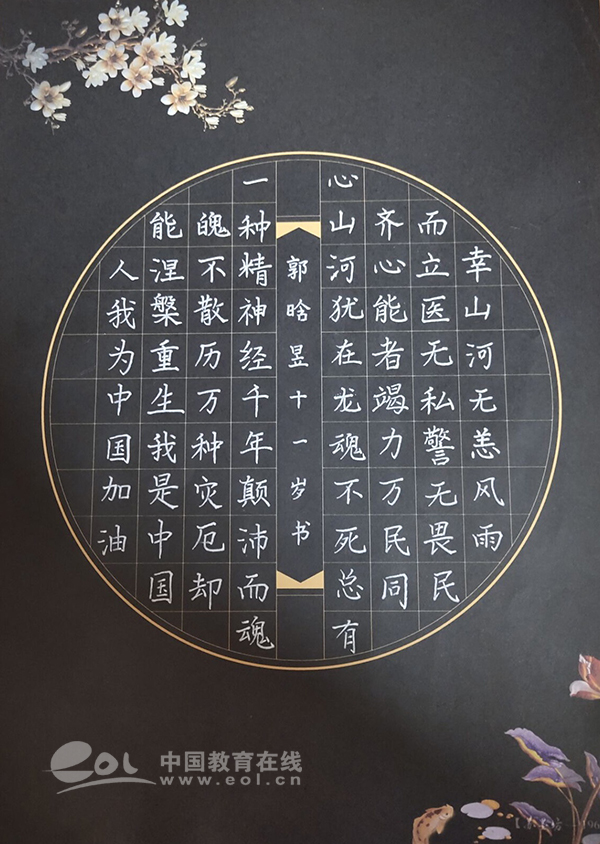 幸山河无恙风雨
而立医无私警无畏民
齐心能者竭力万民同
心山河犹在龙魂不死总有
郭晗昱十一岁书
一种精神经千年颠沛而魂
魄不散历万种灾厄却
能涅槃重生我是中国
人我为中国加油
eol 中国教育在线
www.eol.cn